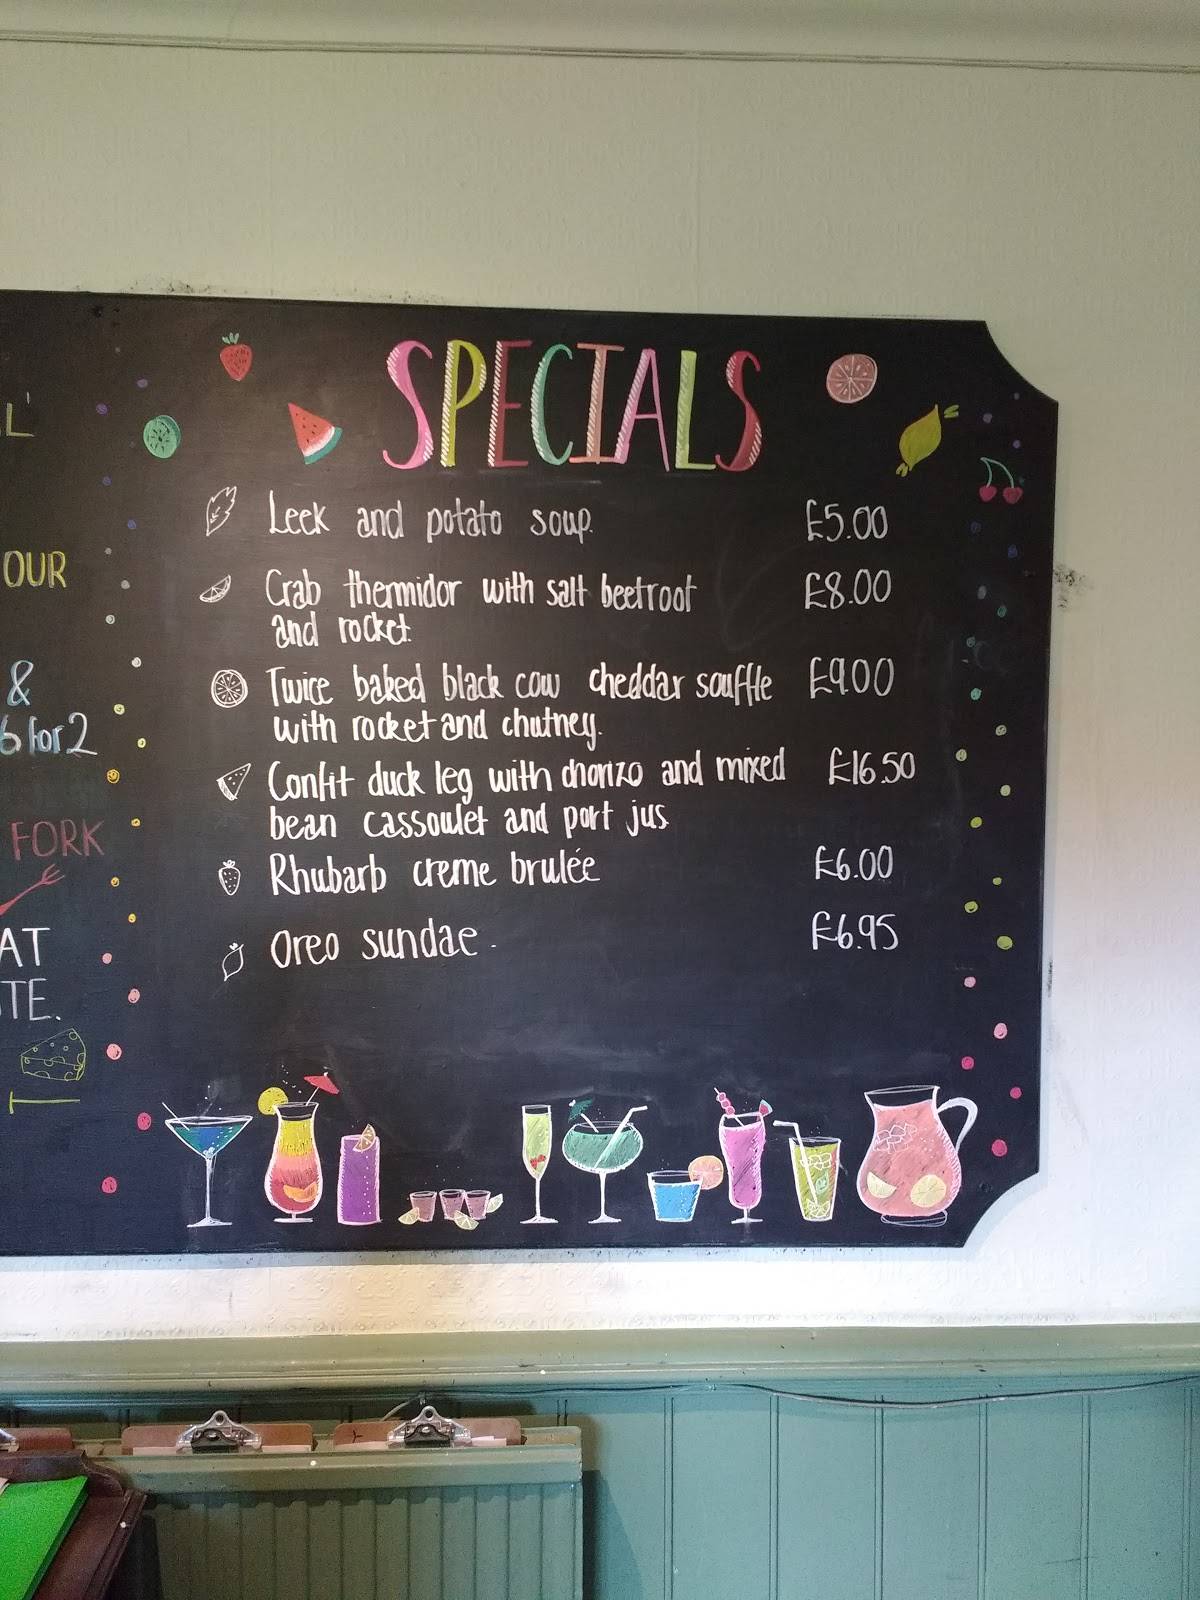 L'
OUR
&
6 for 2
FORK
AT
TE.
SPECIALS
Leek and potato soup. £5.00
Crab thermidor with salt beetroot £8.00
and rocket.
Twice baked black cow cheddar souffle £9.00
with rocket and chutney.
Confit duck leg with chorizo and mixed £16.50
bean cassoulet and port jus
Rhubarb creme brulée £6.00
Oreo sundae. £6.95